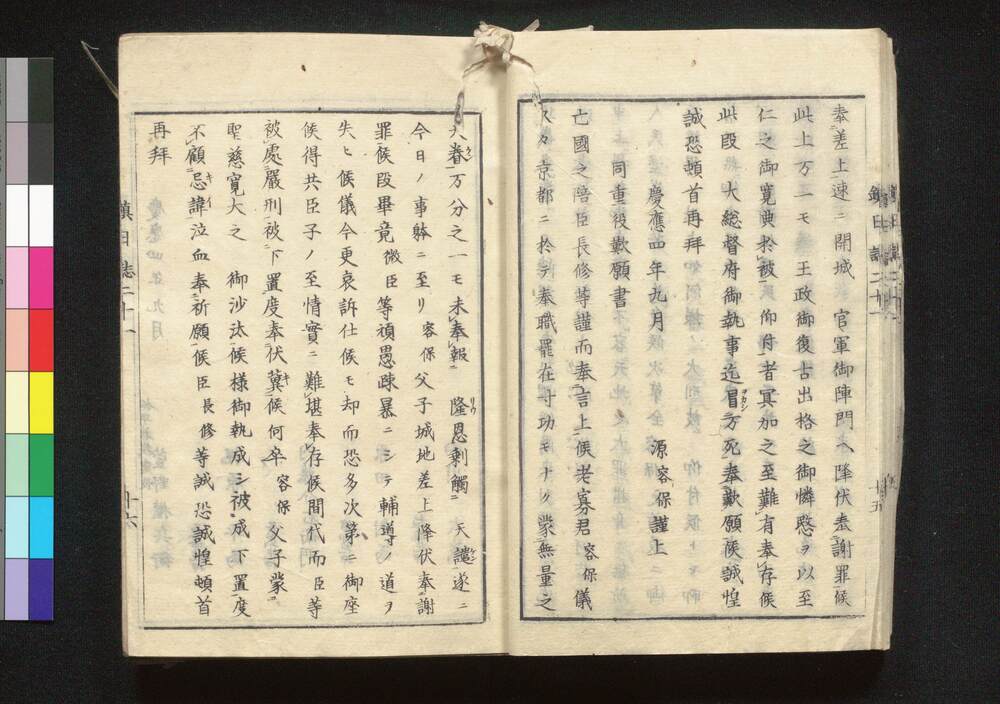 奉差上速ニ開城 官軍御陣門ヘ降伏奉謝罪候
此上万一モ 王政御復古出格之御憐愍ヲ以至
仁之御寛典於被仰付者冥加之至難有奉存候
此段 大総督府御執事迄冒万死奉歎願候誠惶
誠恐頓首再拜
慶應四年九月 源容保謹上
同重役歎願書
亡國之陪臣長修等謹而奉言上候老寡君容保儀
久々京都ニ於テ奉職罷在寸功モナク蒙無量之
大眷万分之一モ未奉報 隆恩剰觸 天譴遂ニ
今日ノ事躰ニ至リ容保父子城地差上降伏奉謝
罪候段畢竟微臣等頑愚疎暴ニシテ輔導ノ道ヲ
失ヒ候儀今更哀訴仕候モ却而恐多次第ニ御座
候得共臣子ノ至情實ニ難堪奉存候間代而臣等
被處嚴刑被下置度奉伏冀候何卒容保父子蒙
聖慈寛大之 御沙汰候様御執成シ被成下置度
不顧忌諱泣血奉祈願候臣長修等誠恐誠惶頓首
再拜
鎮日誌二十一
十六